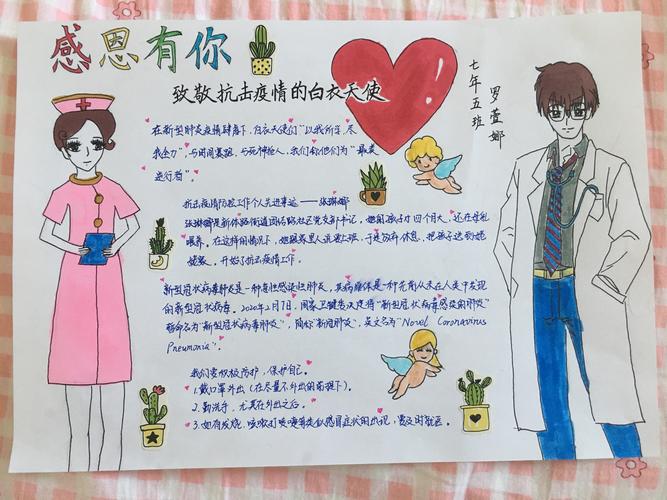 感恩有你
致敬抗击疫情的白衣天使
七年五班
罗萱娜
在新型肺炎疫情肆虐下，白衣天使们“以我所学，尽
我全力”，与时间赛跑，与死神抢人，我们称他们为“最美
逆行者”。
抗击疫情防控工作个人先进事迹——张琳娜
张琳娜是新体路街道团结路社区党支部书记，她的孩子才四个月大，还在母乳
喂养。在这样的情况下，她跟家里人说要上班，于是放弃休息，把孩子送到姥
姥家。开始了抗击疫情工作。
新型冠状病毒肺炎是一种急性感染性肺炎，其病原体是一种先前从未在人类中发现
的新型冠状病毒。2020年2月7日，国家卫健委决定将“新型冠状病毒感染的肺炎”
暂命名为“新型冠状病毒肺炎”，简称“新冠肺炎”，英文名为“Novel Coronavirus
Pneumonia”。
我们要积极防护，保护自己。
1.戴口罩外出（在尽量不外出的前提下）。
2.勤洗手，尤其在外出之后。
3.如有发烧，咳嗽打喷嚏等类似感冒症状的出现，要及时就医。